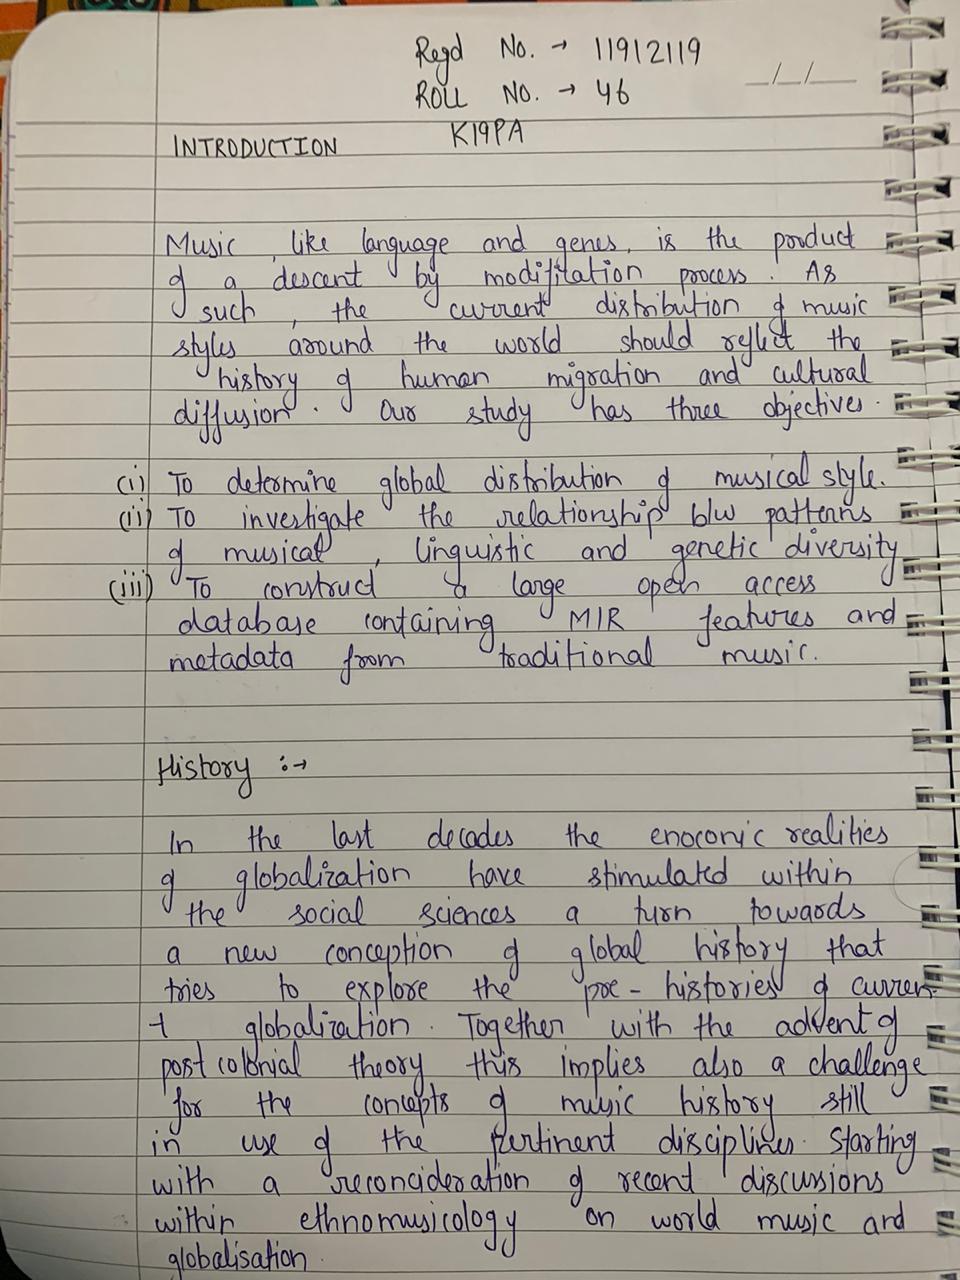 Regd No. → 11912119
ROLL No. → 46
K19PA
INTRODUCTION
Music, like language and genes, is the product
of a descent by modification process. As
such, the current distribution of music
styles around the world should reflect the
history of human migration and cultural
diffusion. Our study has three objectives.
(i) To determine global distribution of musical style.
(ii) To investigate the relationship b/w patterns
of musical, linguistic and genetic diversity
(iii) To construct a large open access
database containing MIR features and
metadata from traditional music.
History :→
In the last decades the enoconic realities
of globalization have stimulated within
the social sciences a turn towards
a new conception of global history that
tries to explore the pre-histories of curren-
t globalization. Together with the advent of
post colonial theory this implies also a challenge
for the concepts of music history still
in use of the pertinent disciplines. Starting
with a reoncideration of recent discussions
within ethnomusicology on world music and
globalisation.